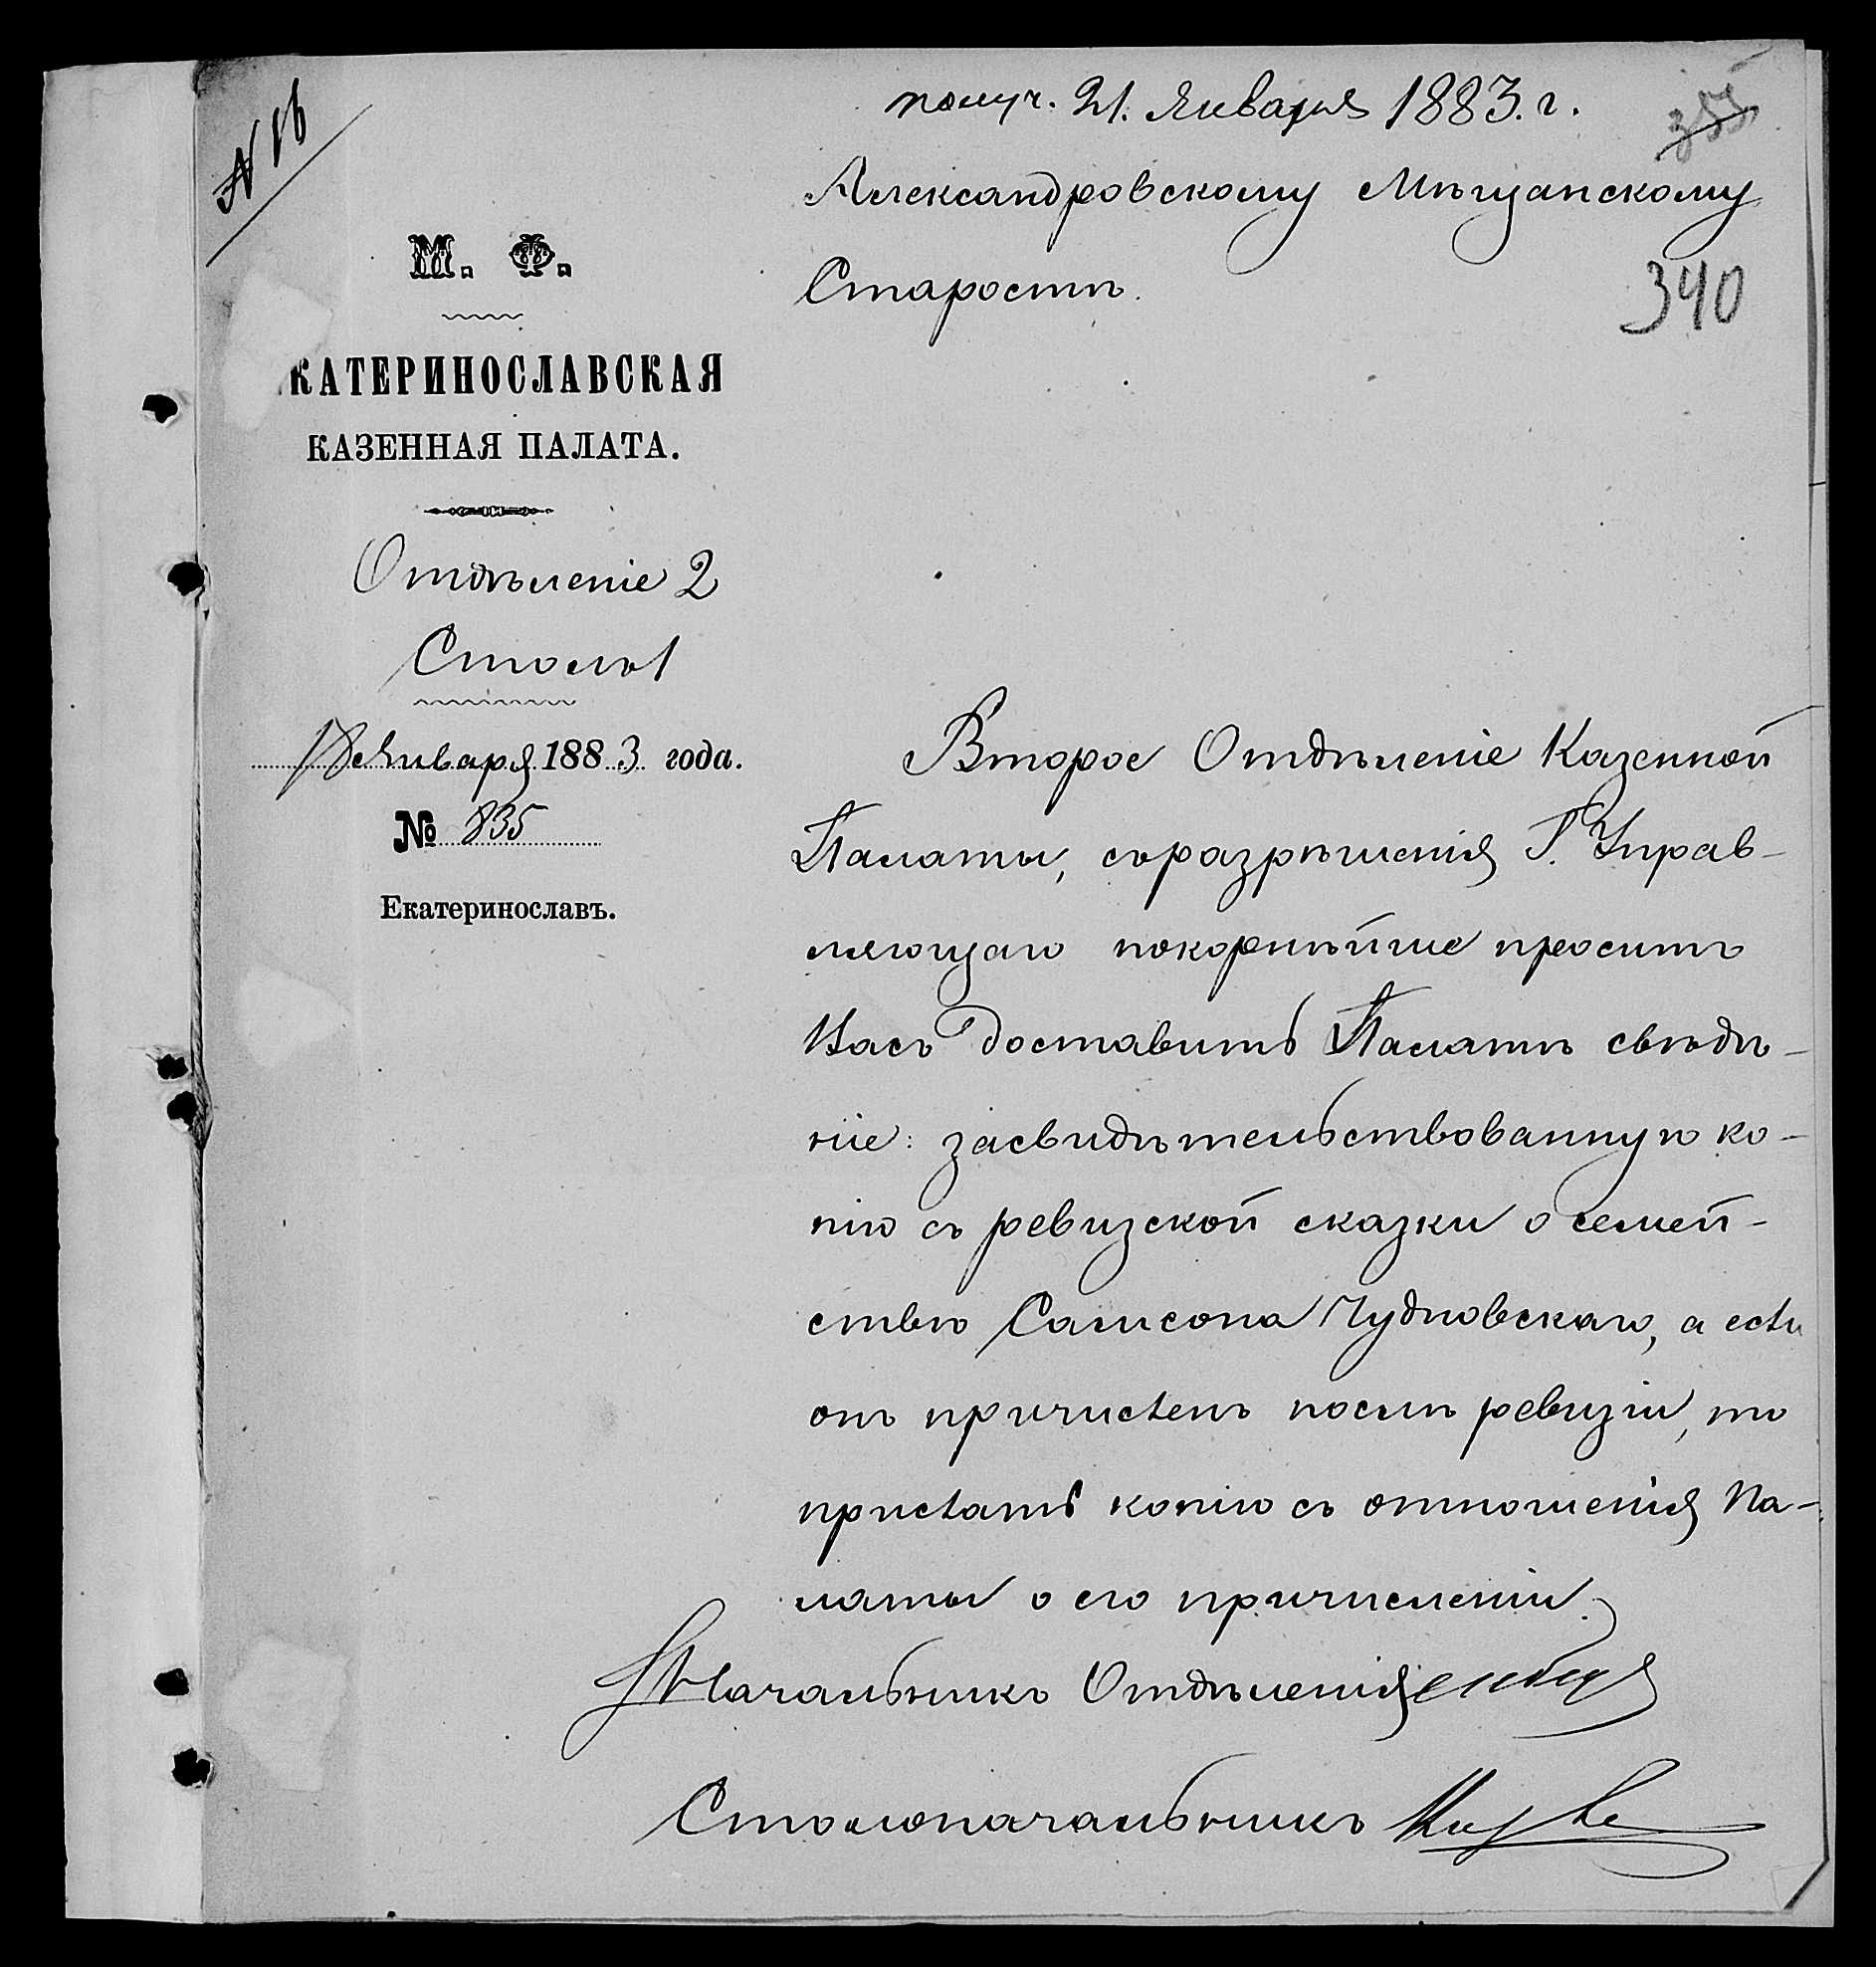 получ. 21. Января 1883. г.
№ 86
Александровскому Мѣщанскому
Старостѣ.
340
М. Ф.
КАТЕРИНОСЛАВСКАЯ
КАЗЕННАЯ ПАЛАТА.
Отдѣленіе 2
Столъ 1
18 Января 1883 года.
№ 835
Екатеринославъ.
Второе Отдѣленіе Казенной
Палаты, съ разрѣшенія Г. Управ-
ляющаго покорнѣйше проситъ
Васъ доставить Палатѣ свѣдѣ-
ніе: засвидѣтельствованную ко-
пію съ ревизской сказки о семей-
ствѣ Самсона Чудновскаго, а если
онъ причисленъ послѣ ревизіи, то
прислать копію съ отношенія Па-
латы о его причисленіи.
Начальникъ Отдѣленія
Столоначальникъ